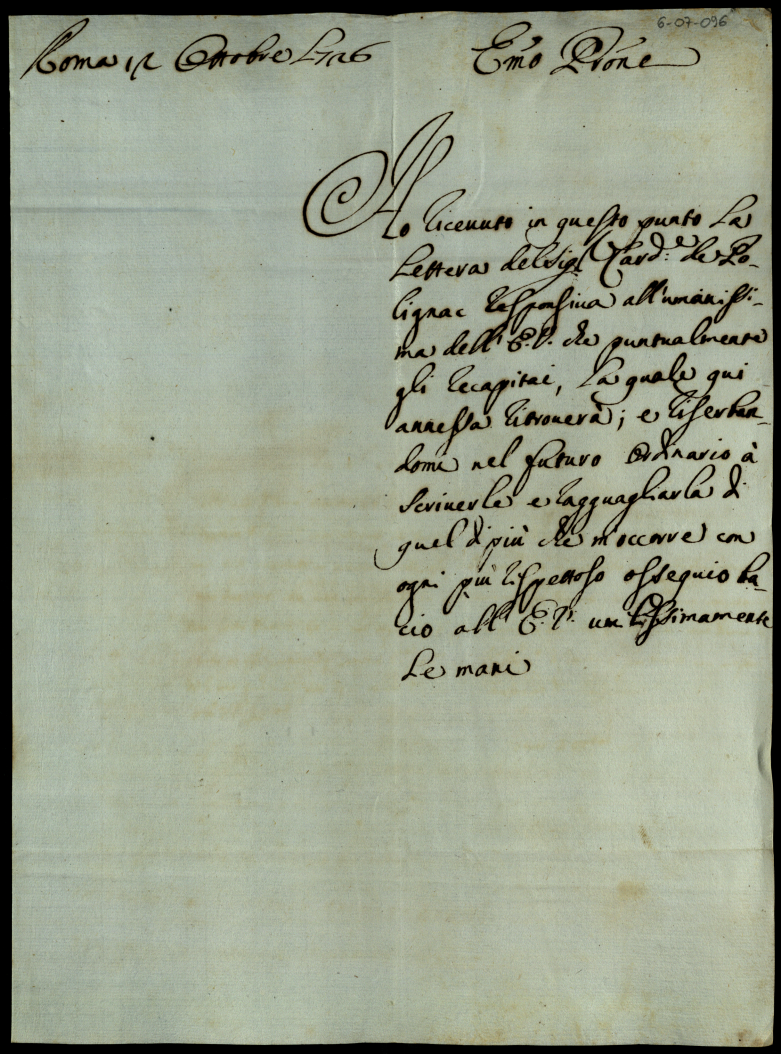 6-07-096
Roma 12 Ottobre 1726
Emo Prone
Ho ricevuto in questo punto La
Lettera del Sigr Card.e de Po-
lignac responsiva all'umanissi-
ma dell' E. V. che puntualmente
gli recapitai, La quale qui
annessa ritroverà; e riserban-
domi nel futuro Ordinario à
scriverle e ragguagliarla di
quel di più che m'occorre con
ogni più rispettoso ossequio ba-
cio all' E. V. umilissimamente
Le mani